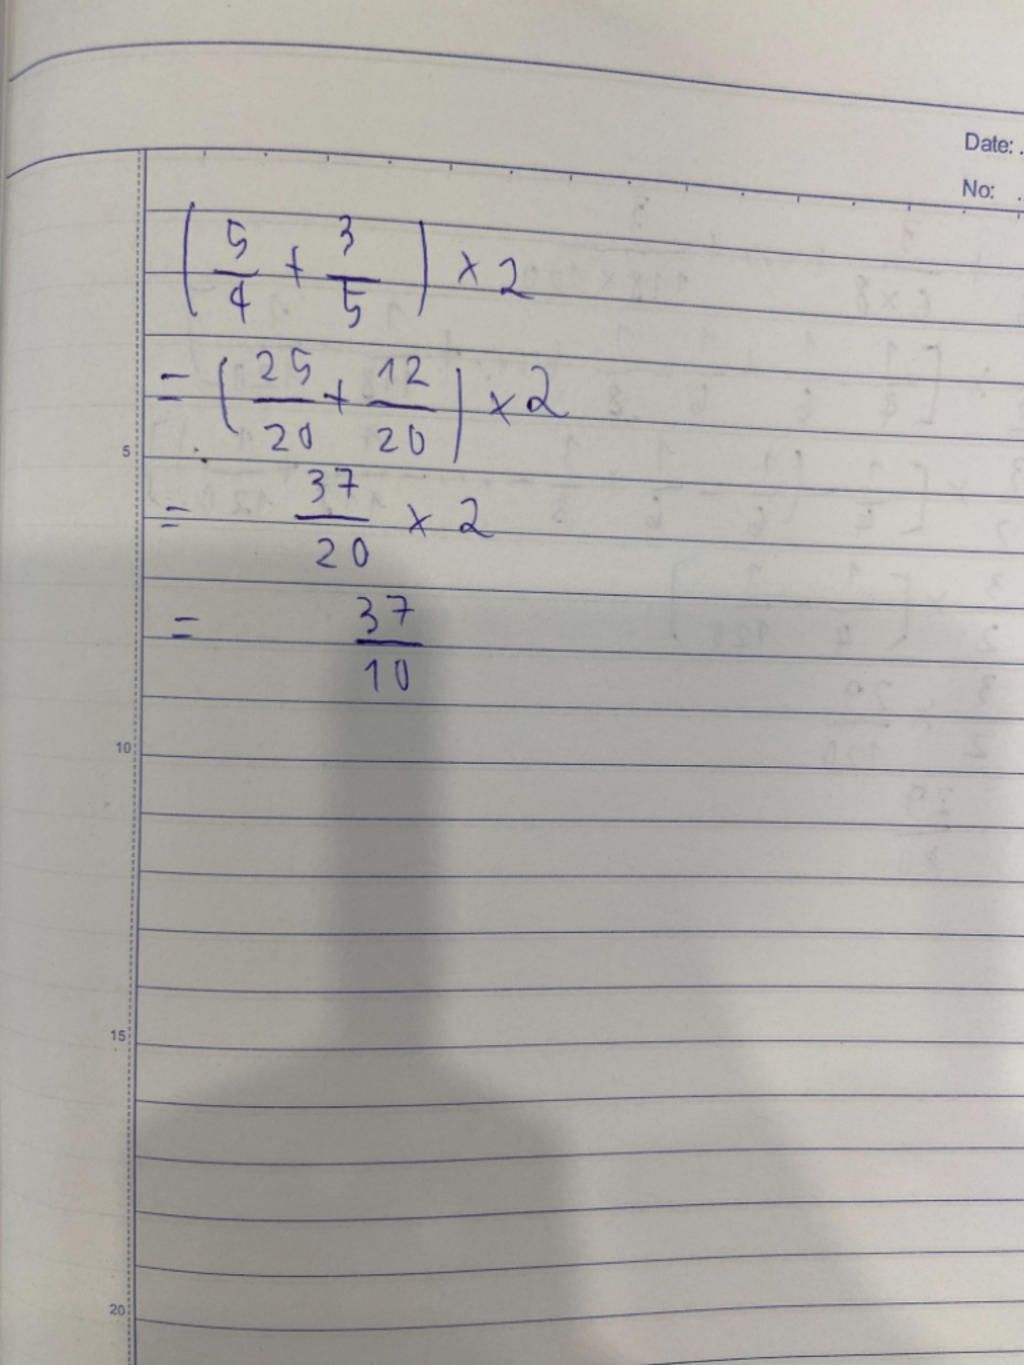 Date: .
No: .
( 5/4 + 3/5 ) × 2
= ( 25/20 + 12/20 ) × 2
5
= 37/20 × 2
= 37/10
10
15
20